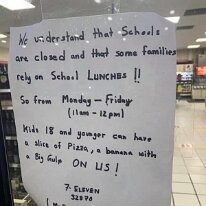 We understand that Schools
are closed and that some families
rely on School LUNCHES !!
So from Monday - Friday
(11am - 12pm)
Kids 18 and younger can have
a slice of Pizza, a banana with
a Big Gulp ON US!
7-ELEVEN
32870